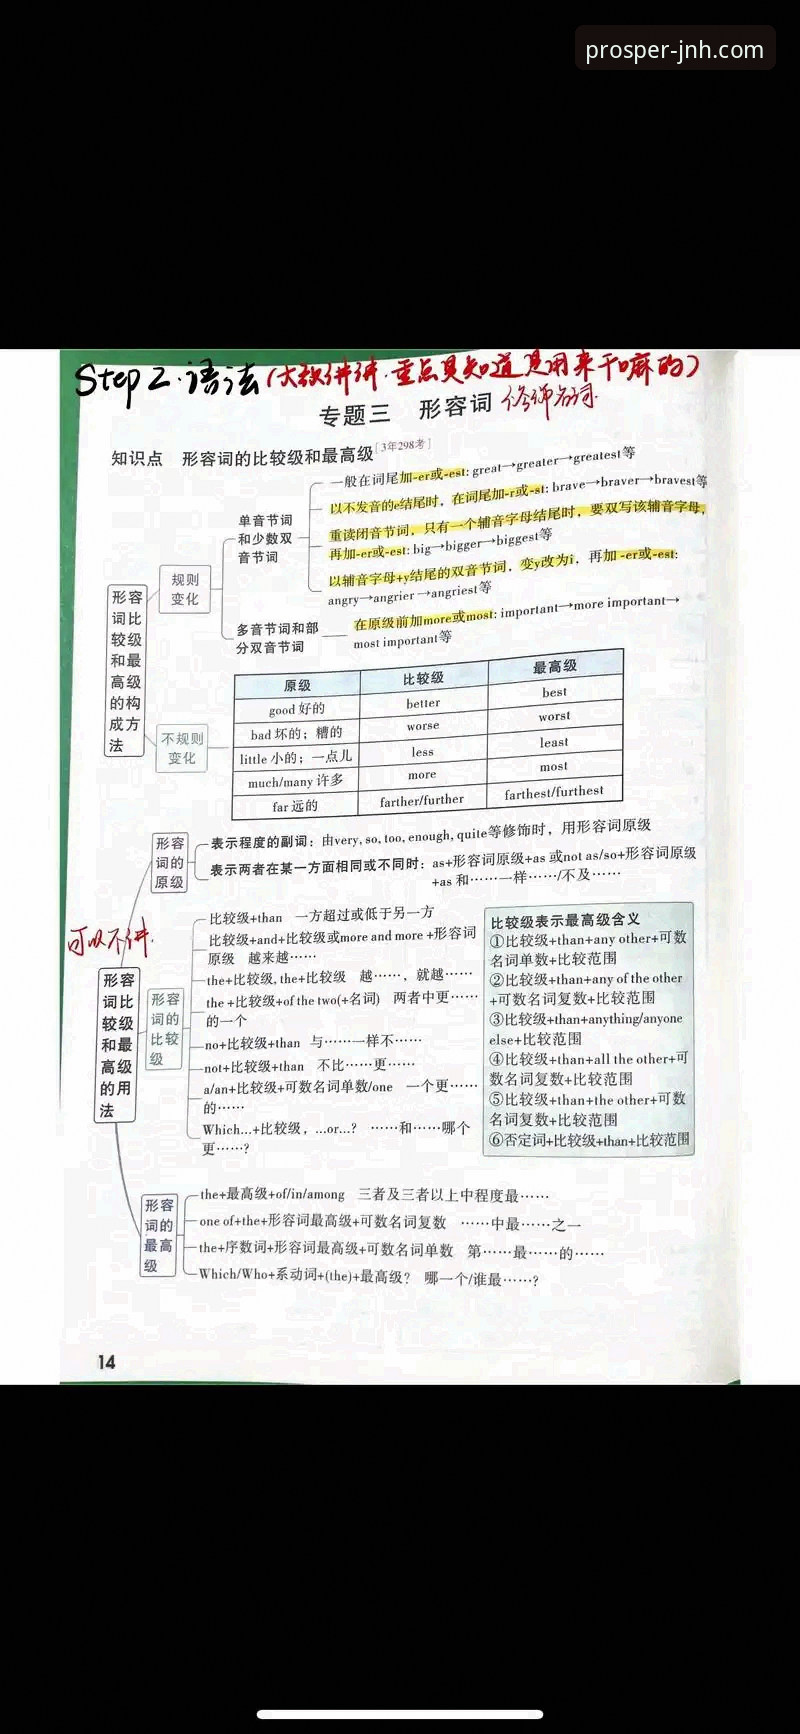 prosper-jnh.com
Step 2.语法(大致讲讲.重点是知道是用来干嘛的)
专题三 形容词 修饰名词.
知识点 形容词的比较级和最高级[3年298考]
形容词比较级和最高级的构成方法
规则变化
单音节词和少数双音节词
一般在词尾加-er或-est: great→greater→greatest等
以不发音的e结尾时，在词尾加-r或-st: brave→braver→bravest等
重读闭音节词，只有一个辅音字母结尾时，要双写该辅音字母，
再加-er或-est: big→bigger→biggest等
以辅音字母+y结尾的双音节词，变y改为i，再加 -er或-est:
angry→angrier→angriest等
多音节词和部分双音节词
在原级前加more或most: important→more important→
most important等
不规则变化
原级 比较级 最高级
good 好的 better best
bad 坏的；糟的 worse worst
little 小的；一点儿 less least
much/many 许多 more most
far 远的 farther/further farthest/furthest
可以不讲.
形容词比较级和最高级的用法
形容词的原级
表示程度的副词：由very, so, too, enough, quite等修饰时，用形容词原级
表示两者在某一方面相同或不同时：as+形容词原级+as 或not as/so+形容词原级
+as 和……一样……/不及……
形容词的比较级
比较级+than 一方超过或低于另一方
比较级+and+比较级或more and more +形容词
原级 越来越……
the+比较级, the+比较级 越……，就越……
the +比较级+of the two(+名词) 两者中更……
的一个
no+比较级+than 与……一样不……
not+比较级+than 不比……更……
a/an+比较级+可数名词单数/one 一个更……
的……
Which...+比较级，...or...? ……和……哪个
更……?
比较级表示最高级含义
①比较级+than+any other+可数
名词单数+比较范围
②比较级+than+any of the other
+可数名词复数+比较范围
③比较级+than+anything/anyone
else+比较范围
④比较级+than+all the other+可
数名词复数+比较范围
⑤比较级+than+the other+可数
名词复数+比较范围
⑥否定词+比较级+than+比较范围
形容词的最高级
the+最高级+of/in/among 三者及三者以上中程度最……
one of+the+形容词最高级+可数名词复数 ……中最……之一
the+序数词+形容词最高级+可数名词单数 第……最……的……
Which/Who+系动词+(the)+最高级? 哪一个/谁最……?
14